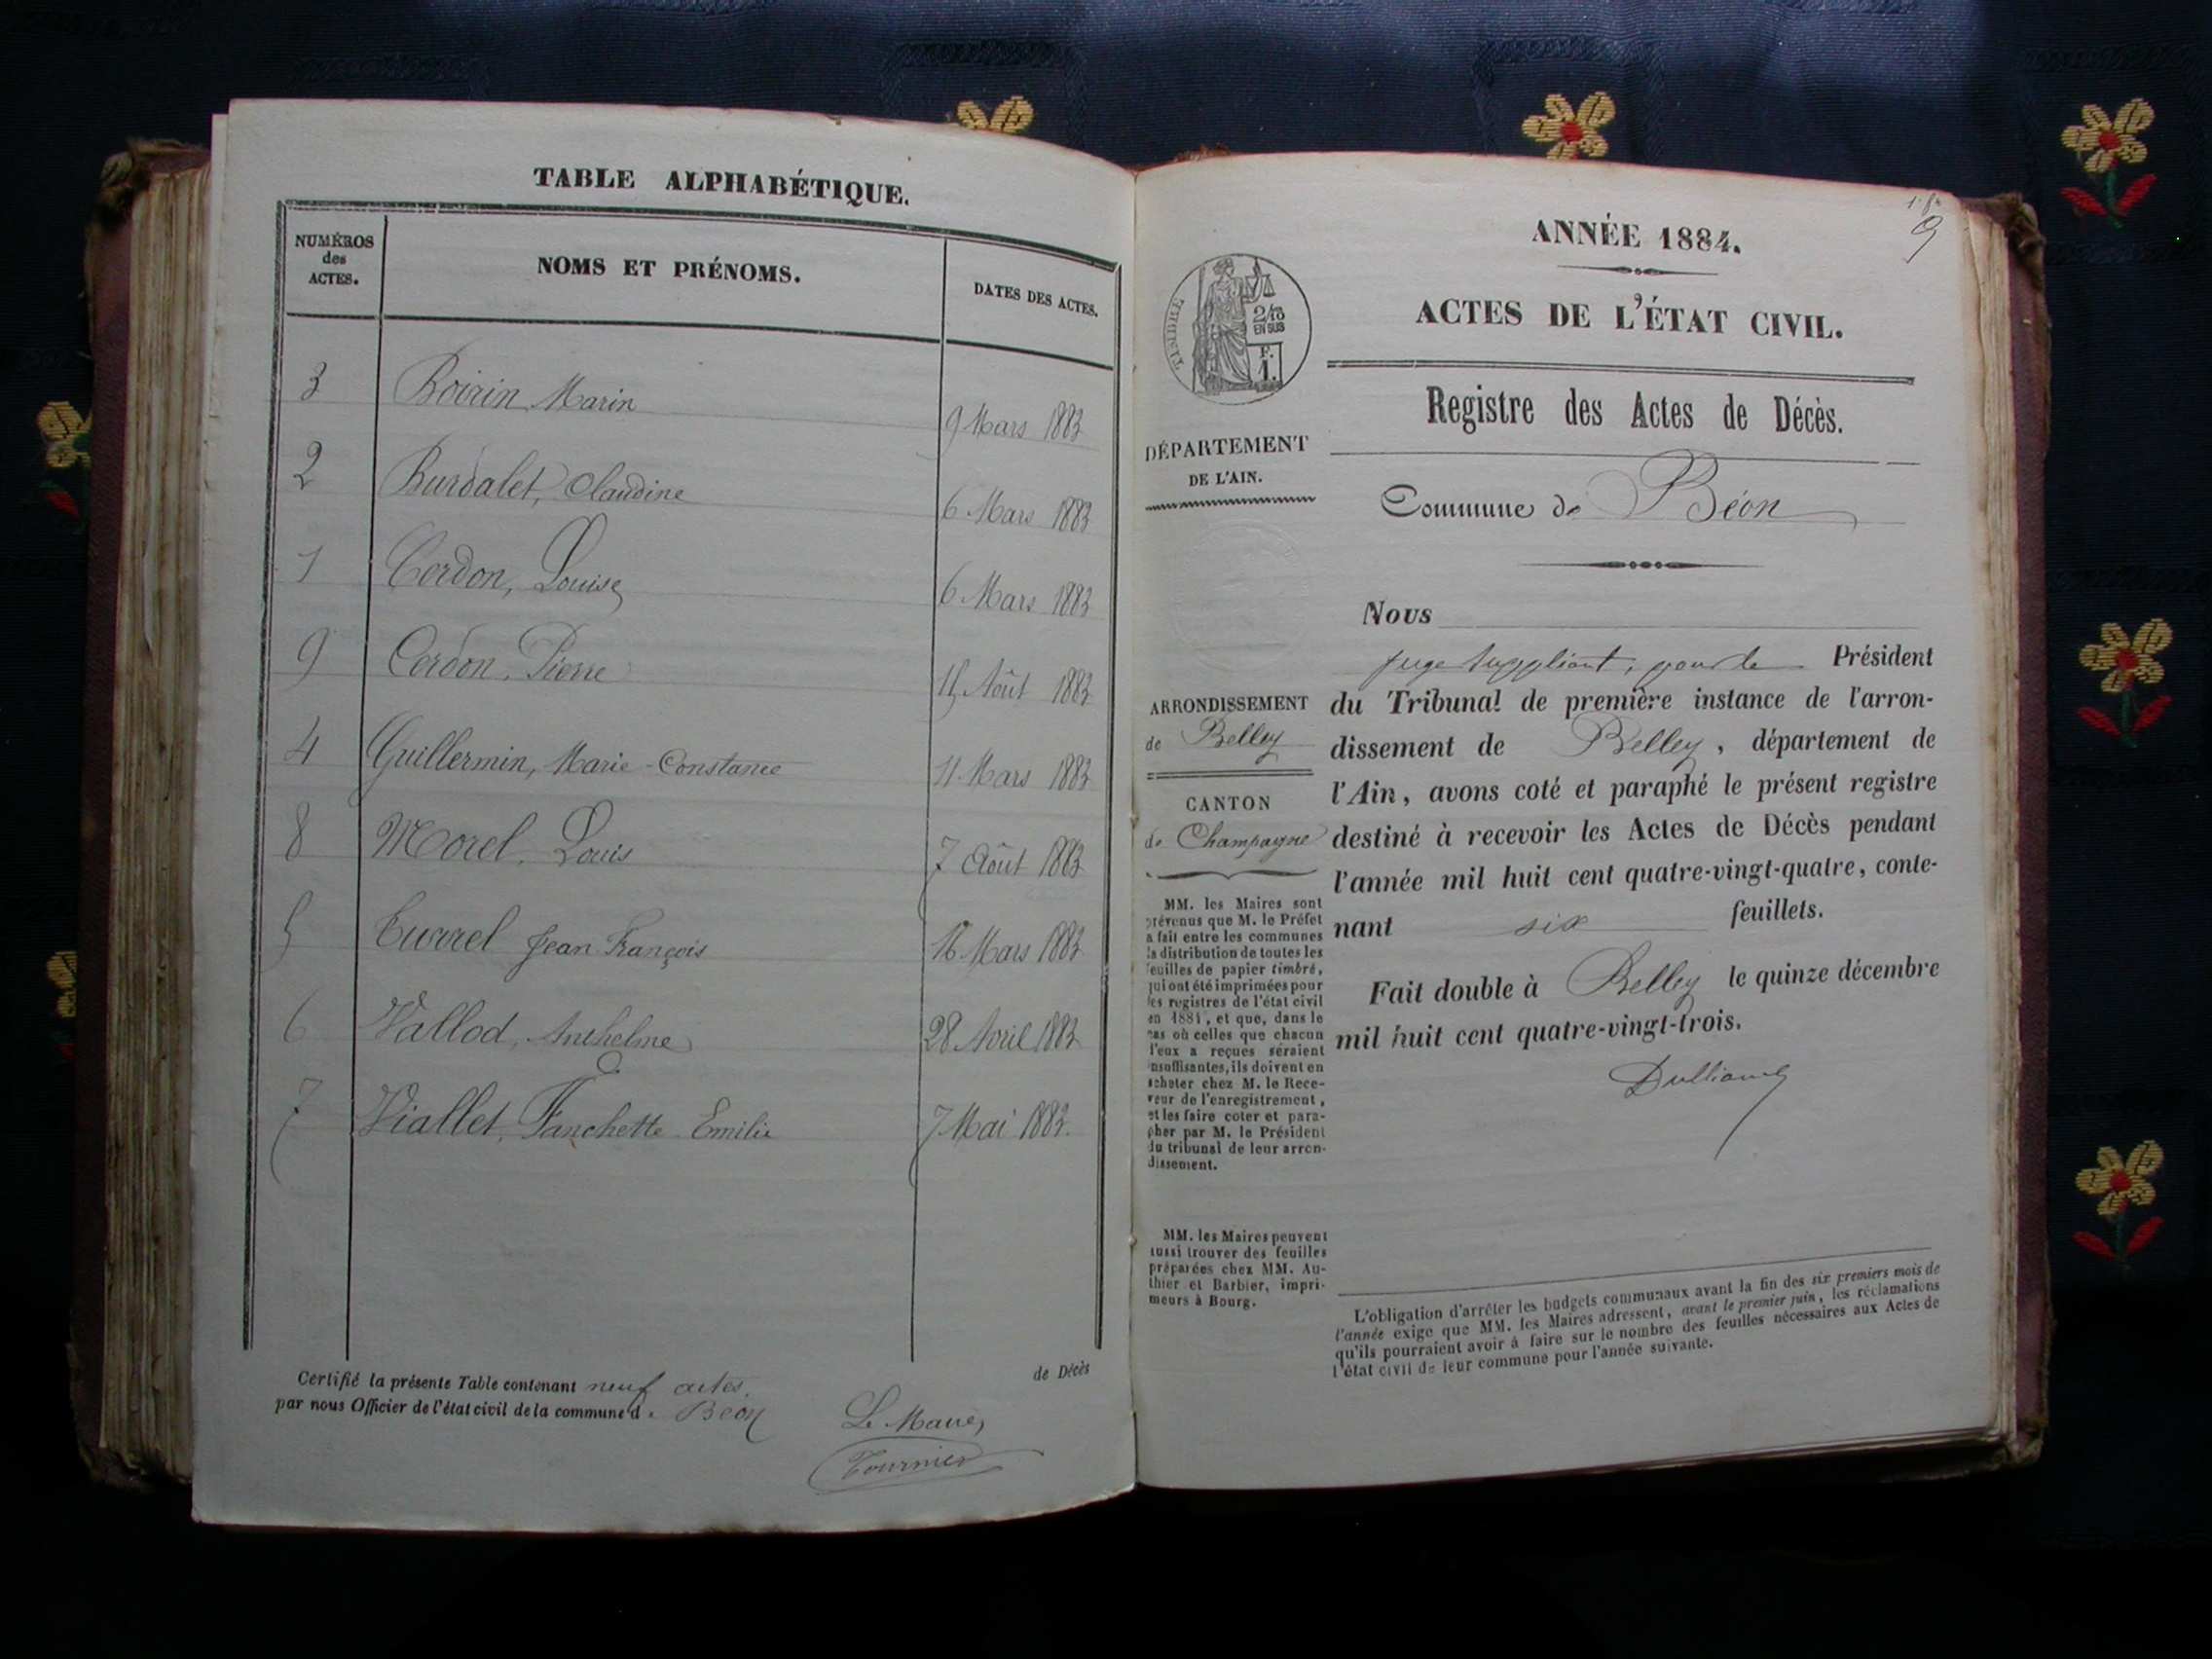 TABLE ALPHABÉTIQUE.
NUMÉROS
des
ACTES.
NOMS ET PRÉNOMS.
DATES DES ACTES.
3 Boirin Marin 9 Mars 1883
2 Burdalet, Claudine 6 Mars 1883
1 Cerdon, Louise 6 Mars 1883
9 Cerdon, Pierre 15 Août 1883
4 Guillermin, Marie-Constance 11 Mars 1883
8 Morel, Louis 7 Août 1883
5 Currel Jean François 16 Mars 1883
6 Vallod, Anthelme 28 Avril 1883
7 Viallet, Fanchette Emilie 7 Mai 1883.
Certifié la présente Table contenant neuf actes. de Décès
par nous Officier de l'état civil de la commune d. Béon
Le Maire,
Tournier
ANNÉE 1884.
9
ACTES DE L'ÉTAT CIVIL.
TIMBRE
2/10
EN SUS
F.
1.
Registre des Actes de Décès.
DÉPARTEMENT
DE L'AIN.
Commune de Béon
ARRONDISSEMENT
de Belley
CANTON
de Champagne
MM. les Maires sont
prévenus que M. le Préfet
a fait entre les communes
la distribution de toutes les
feuilles de papier timbré,
qui ont été imprimées pour
les registres de l'état civil
en 1884, et que, dans le
cas où celles que chacun
l'eux a reçues seraient
insuffisantes, ils doivent en
acheter chez M. le Rece-
veur de l'enregistrement,
et les faire coter et para-
pher par M. le Président
du tribunal de leur arron-
dissement.
MM. les Maires peuvent
aussi trouver des feuilles
préparées chez MM. Au-
thier et Barbier, impri-
meurs à Bourg.
Nous
juge suppléant, pour le Président
du Tribunal de première instance de l'arron-
dissement de Belley, département de
l'Ain, avons coté et paraphé le présent registre
destiné à recevoir les Actes de Décès pendant
l'année mil huit cent quatre-vingt-quatre, conte-
nant six feuillets.
Fait double à Belley le quinze décembre
mil huit cent quatre-vingt-trois.
L'obligation d'arrêter les budgets communaux avant la fin des six premiers mois de
l'année exige que MM. les Maires adressent, avant le premier juin, les réclamations
qu'ils pourraient avoir à faire sur le nombre des feuilles nécessaires aux Actes de
l'état civil de leur commune pour l'année suivante.